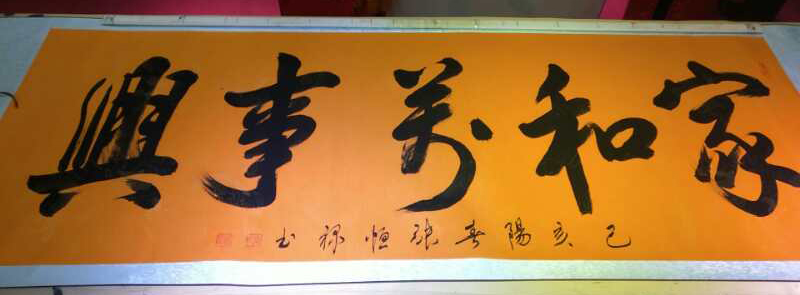 家和萬事興
己亥陽春張恒祿書